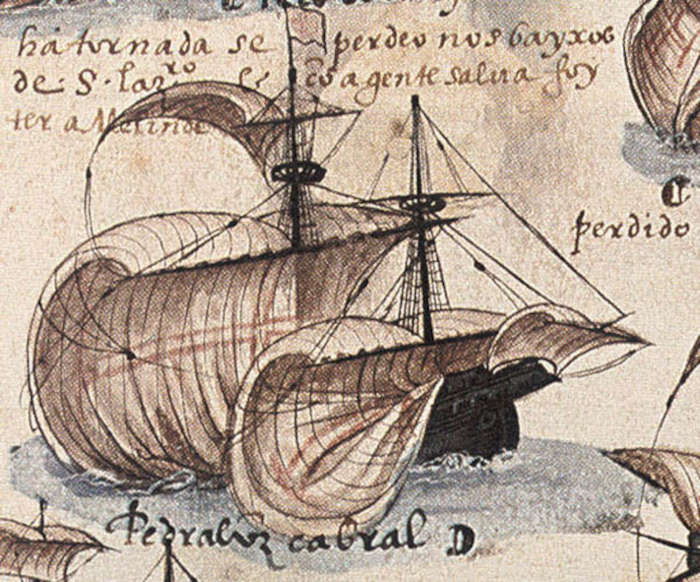 há tornada se perdeo nos bayxos
de: S. lazro cõ a gente salua foy
ter a Melinde
perdido
Pedraluz cabral D